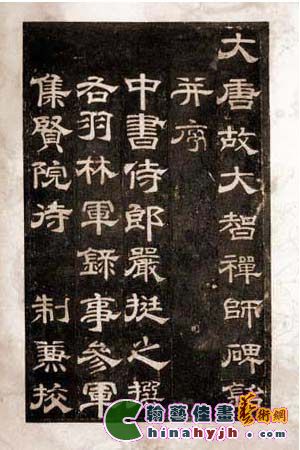 大唐故大智禪師碑銘
并序
中書侍郎嚴挺之撰
右羽林軍錄事參軍
集賢院待 制兼挍
翰藝佳畫 藝術網
Chinahyjh.com